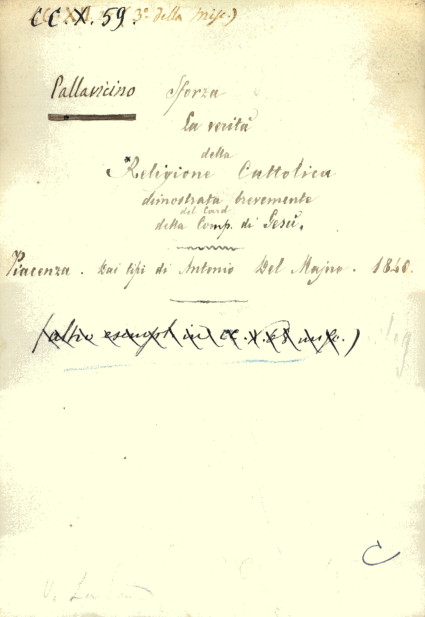 CC.X.59.
3º della misc.)
Pallavicino Sforza
La verità
della
Religione Cattolica
dimostrata brevemente
del Card
della Comp. di Gesù.
Piacenza. Dai tipi di Antonio Del Majno. 1840.
(altro esempl. in CC.X.68 misc.)
C